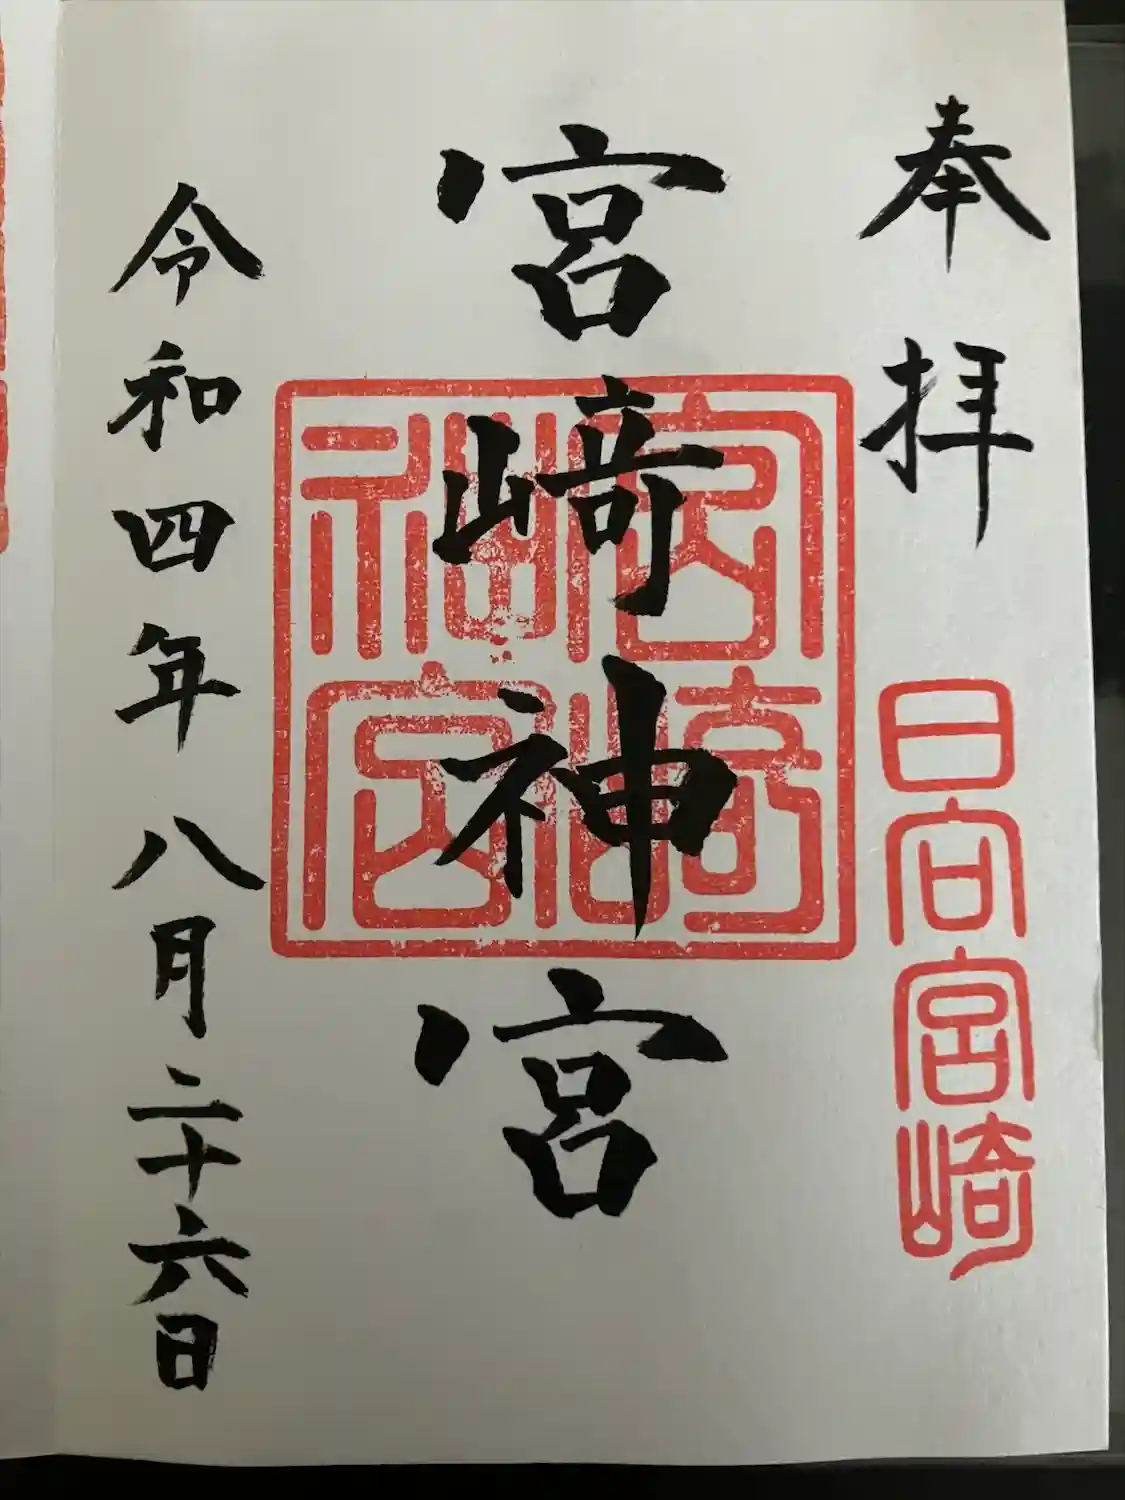 奉拝
日向宮崎
宮崎神宮
宮崎神宮
令和四年八月二十六日